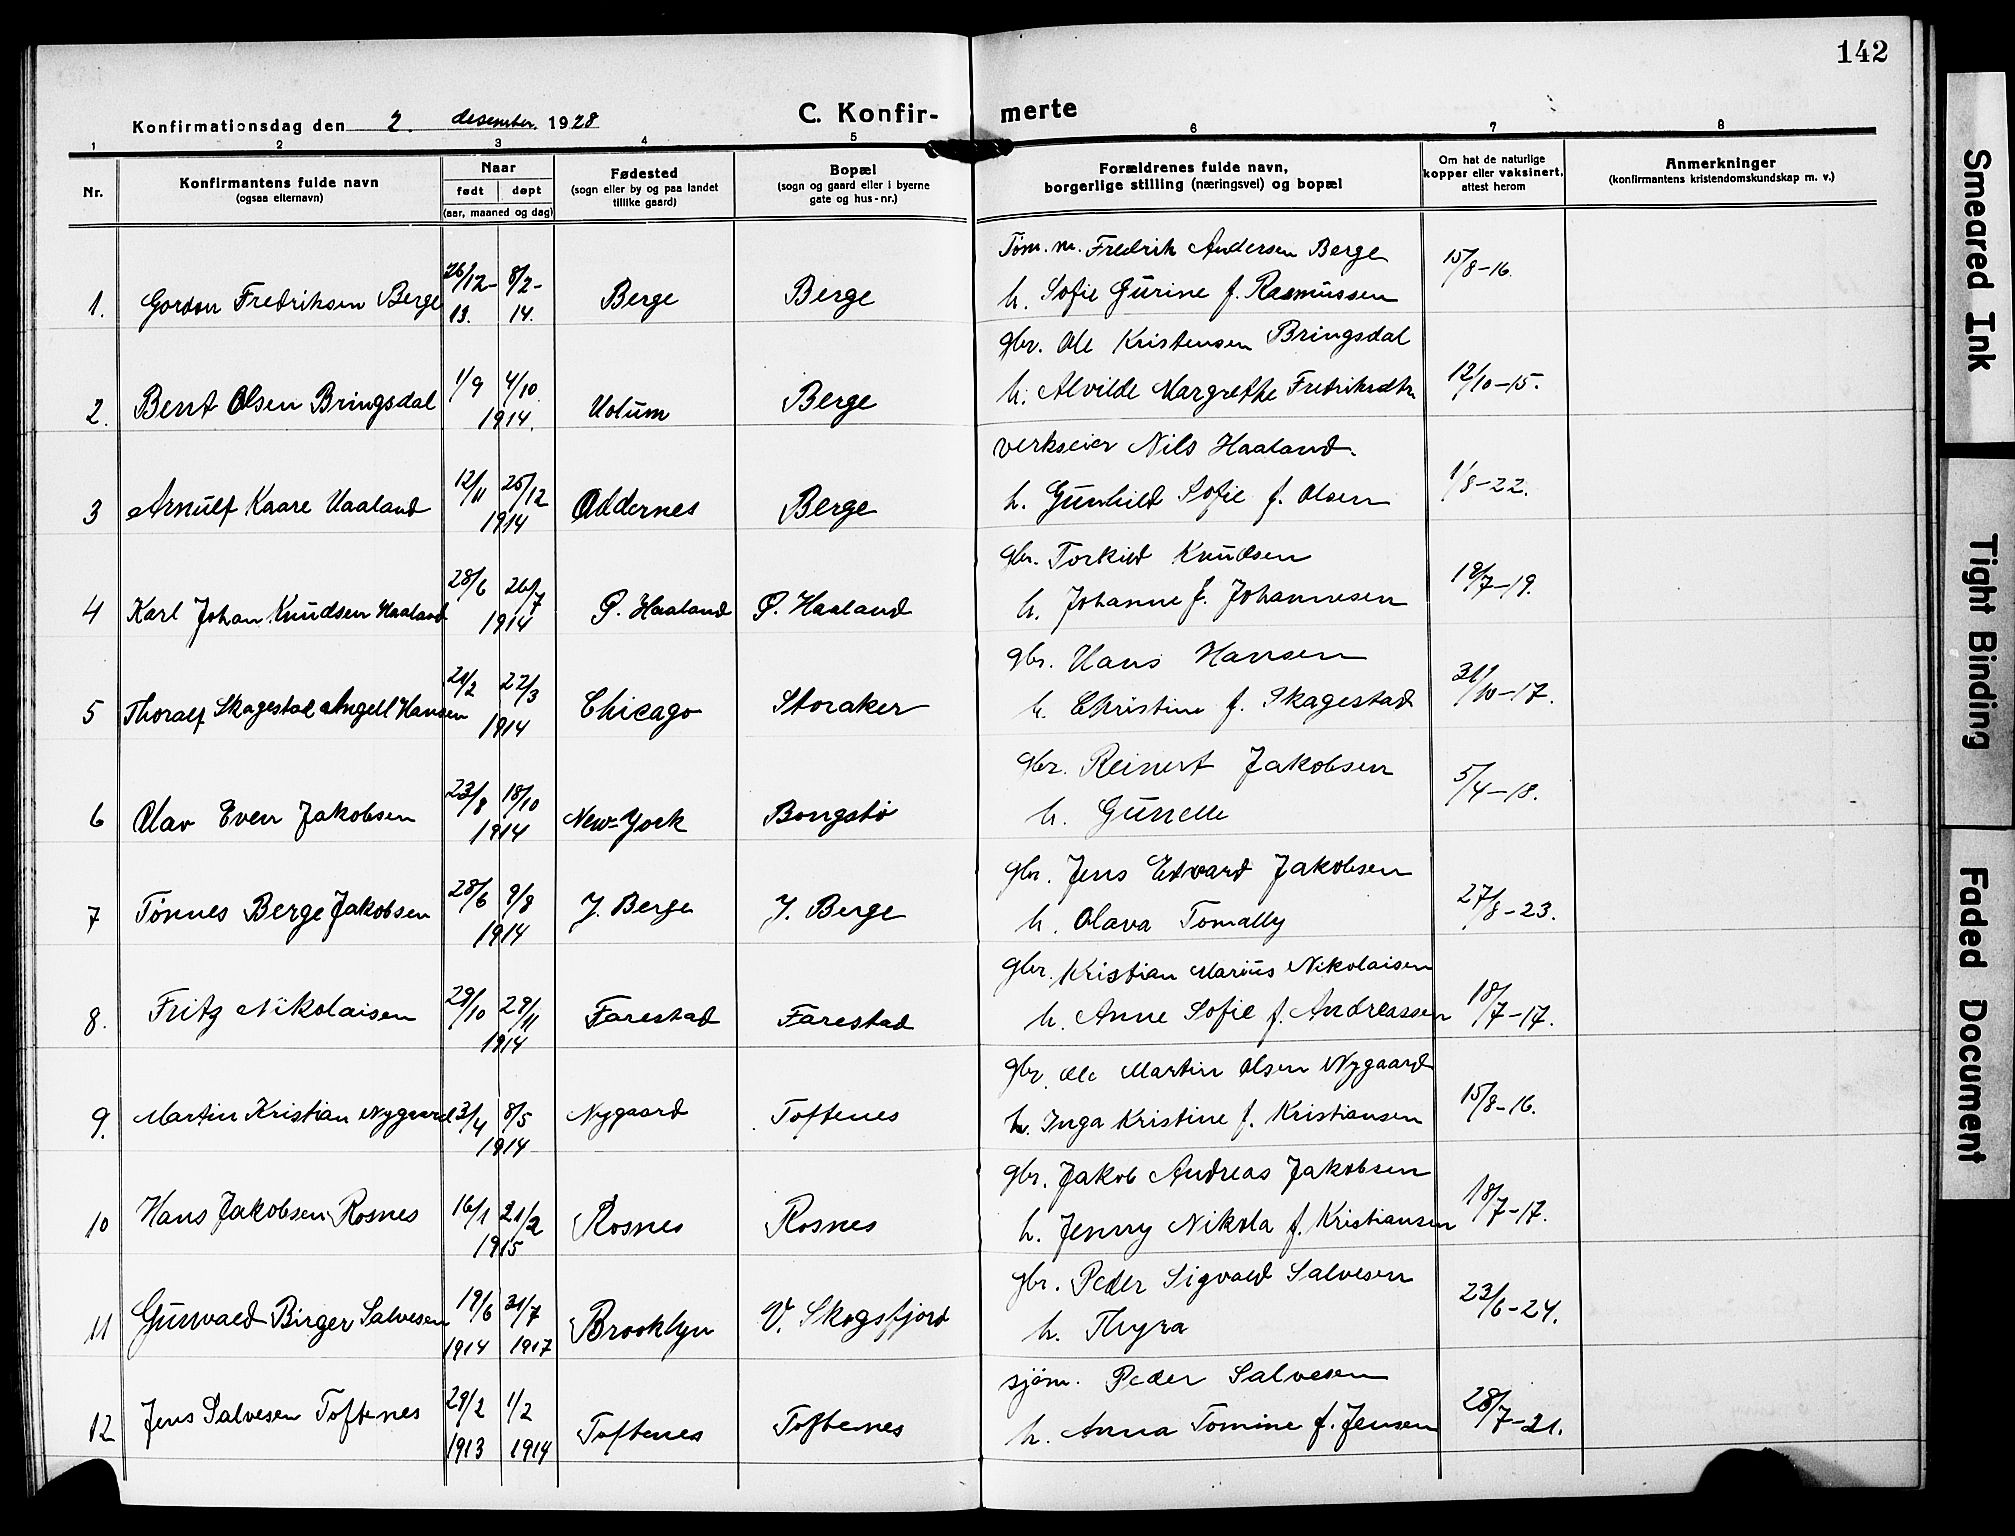 142
Konfirmationsdag den 2. desember. 1928
C. Konfir- merte
1 2 3 4 5 6 7 8
Nr.
Konfirmantens fulde navn
(ogsaa elternavn)
Naar
født døpt
(aar, maaned og dag)
Fødested
(sogn eller by og paa landet
tillike gaard)
Bopæl
(sogn og gaard eller i byerne
gate og hus-nr.)
Forældrenes fulde navn,
borgerlige stilling (næringsvei) og bopæl
Om hat de naturlige
kopper eller vaksinert,
attest herom
Anmerkninger
(konfirmantens kristendomskundskap m. v.)
Tøm. m. Fredrik Andersen Berge
1. Gordon Fredriksen Berge 26/12-13. 8/2-14. Berge Berge h. Sofie Gurine f. Rasmussen 15/8-16.
gbr. Ole Kristensen Bringsdal
2. Bernt Olsen Bringsdal 1/9 4/10 1914. Holum Berge h. Alvilde Margrethe Fredriksdtr 12/10-15.
verkseier Nils Haaland.
3 Arnulf Kaare Haaland 12/11 26/12 1914 Oddernes Berge h. Gunhild Sofie f. Olsen 1/8-22.
gbr. Torkild Knudsen
4 Karl Johan Knudsen Haaland 28/6 26/7 1914 Ø. Haaland Ø. Haaland h. Johanne f. Johannesen 19/7-19.
gbr. Hans Hansen
5 Thoralf Skagestad Angell Hansen 21/2 22/3 1914 Chicago Storaker h. Christine f. Skagestad 31/10-17.
gbr. Reinert Jakobsen
6 Olav Even Jakobsen 23/8 18/10 1914 New-York Bongstø h. Gunelle 5/4-18.
gbr. Jens Edvard Jakobsen
7 Tønnes Berge Jakobsen 28/6 9/8 1914 J. Berge J. Berge h. Olava Tomally 27/8-23.
gbr. Kristian Marius Nikolaisen
8. Fritz Nikolaisen 29/10 29/11 1914 Farestad Farestad h. Anne Sofie f. Andreassen 18/7-17.
gbr. Ole Martin Olsen Nygaard
9. Martin Kristian Nygaard 3/4 8/5 1914 Nygaard Toftenes h. Inga Kristine f. Kristiansen 15/8-16.
gbr. Jakob Andreas Jakobsen
10 Hans Jakobsen Rosnes 16/1 21/2 1915 Rosnes Rosnes h. Jenny Nikola f. Kristiansen 18/7-17.
gbr. Peder Sigvald Salvesen
11 Gunvald Birger Salvesen 19/6 1914 31/7 1917 Brooklyn V. Skogsfjord h. Thyra 23/6-24.
sjøm. Peder Salvesen
12 Jens Salvesen Toftenes 29/2 1913 1/2 1914 Toftenes Toftenes h. Anna Tomine f. Jensen 28/7-21.
Smeared Ink
Tight Binding
Faded Document